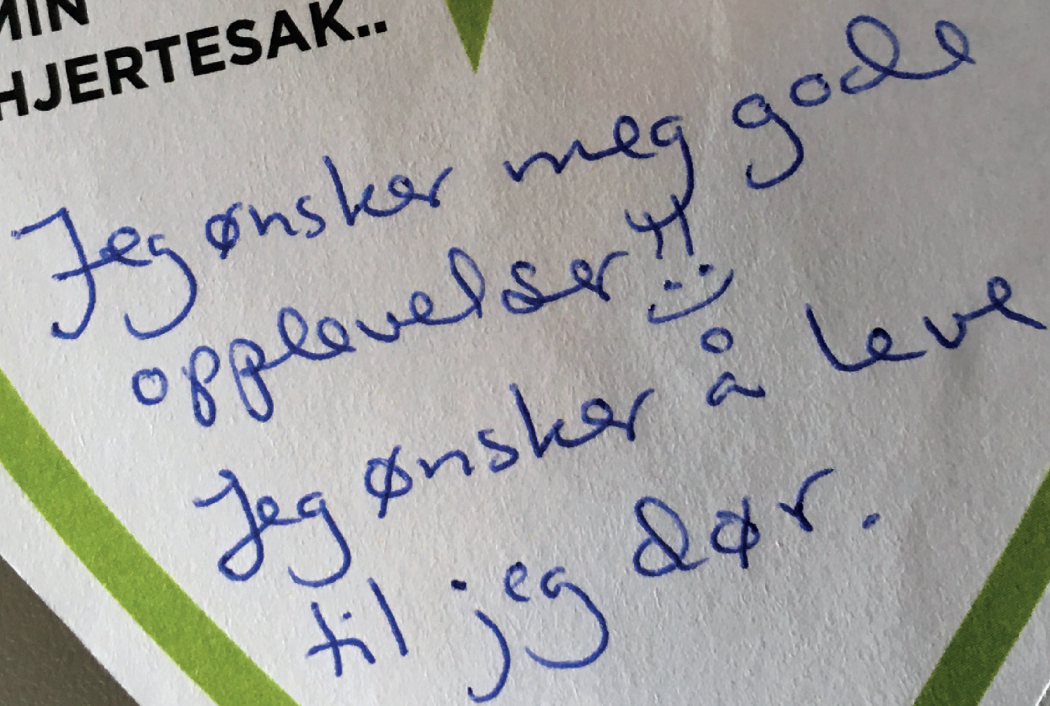 MIN
HJERTESAK..
Jeg ønsker meg gode
opplevelser!! :)
Jeg ønsker å leve
til jeg dør.